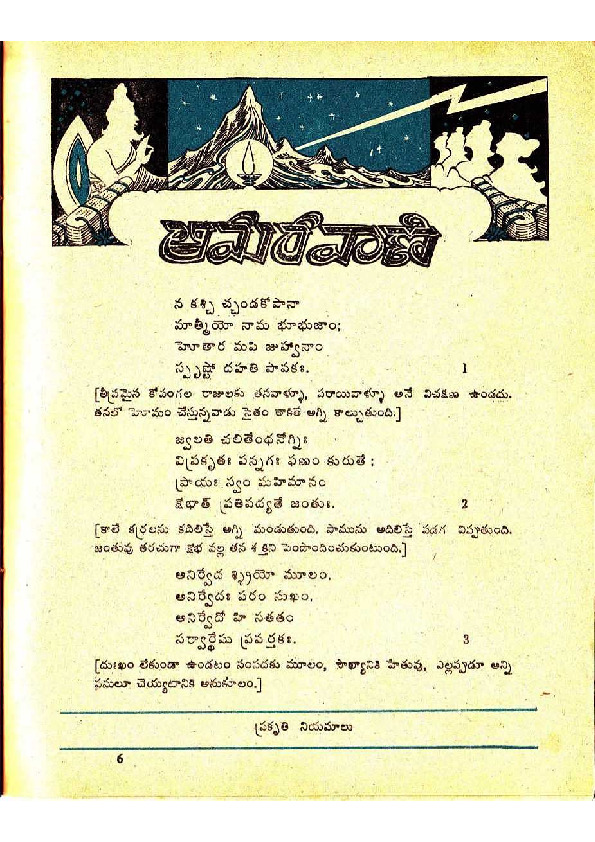 అమరవాణి
న కశ్చి చ్చండకోపానా
మాత్మీయో నామ భూభుజాం;
హోతార మపి జుహ్వానాం
స్పృష్టో దహతి పావకః. 1
[తీవ్రమైన కోపంగల రాజులకు తనవాళ్ళూ, పరాయివాళ్ళూ అనే విచక్షణ ఉండదు.
తనలో హోమం చేస్తున్నవాడు సైతం తాకితే అగ్ని కాల్చుతుంది.]
జ్వలతి చలితేంధనోగ్నిః
విప్రకృతః పన్నగః ఫణం కురుతే;
ప్రాయః స్వం మహిమానం
క్షోభాత్ ప్రతిపద్యతే జంతుః. 2
[కాలే కర్రలను కదిలిస్తే అగ్ని మండుతుంది. పామును అదిలిస్తే పడగ విప్పుతుంది.
జంతువు తరచుగా క్షోభ వల్ల తన శక్తిని పెంపొందించుకుంటుంది.]
అనిర్వేద శ్శ్రియో మూలం,
అనిర్వేదః పరం సుఖం,
అనిర్వేదో హి సతతం
సర్వార్థేషు ప్రవర్తకః. 3
[దుఃఖం లేకుండా ఉండటం సంపదకు మూలం, సౌఖ్యానికి హేతువు, ఎల్లప్పుడూ అన్ని
పనులూ చెయ్యటానికి అనుకూలం.]
ప్రకృతి నియమాలు
6